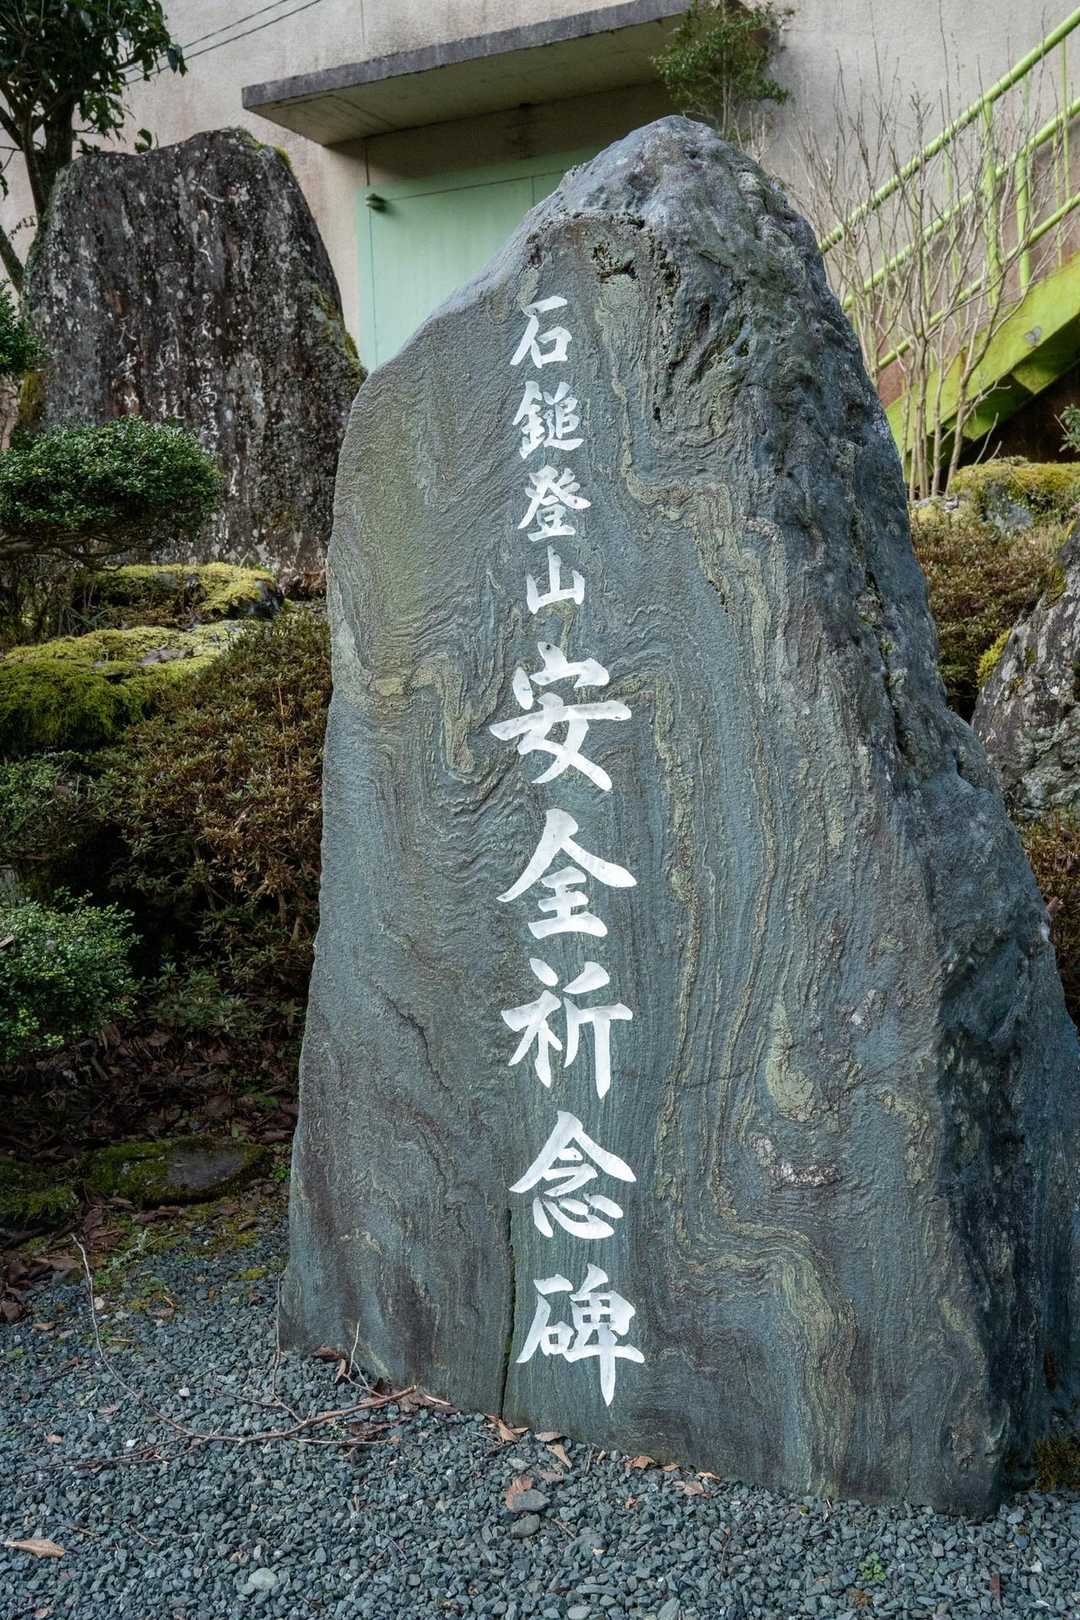 石鎚登山安全祈念碑